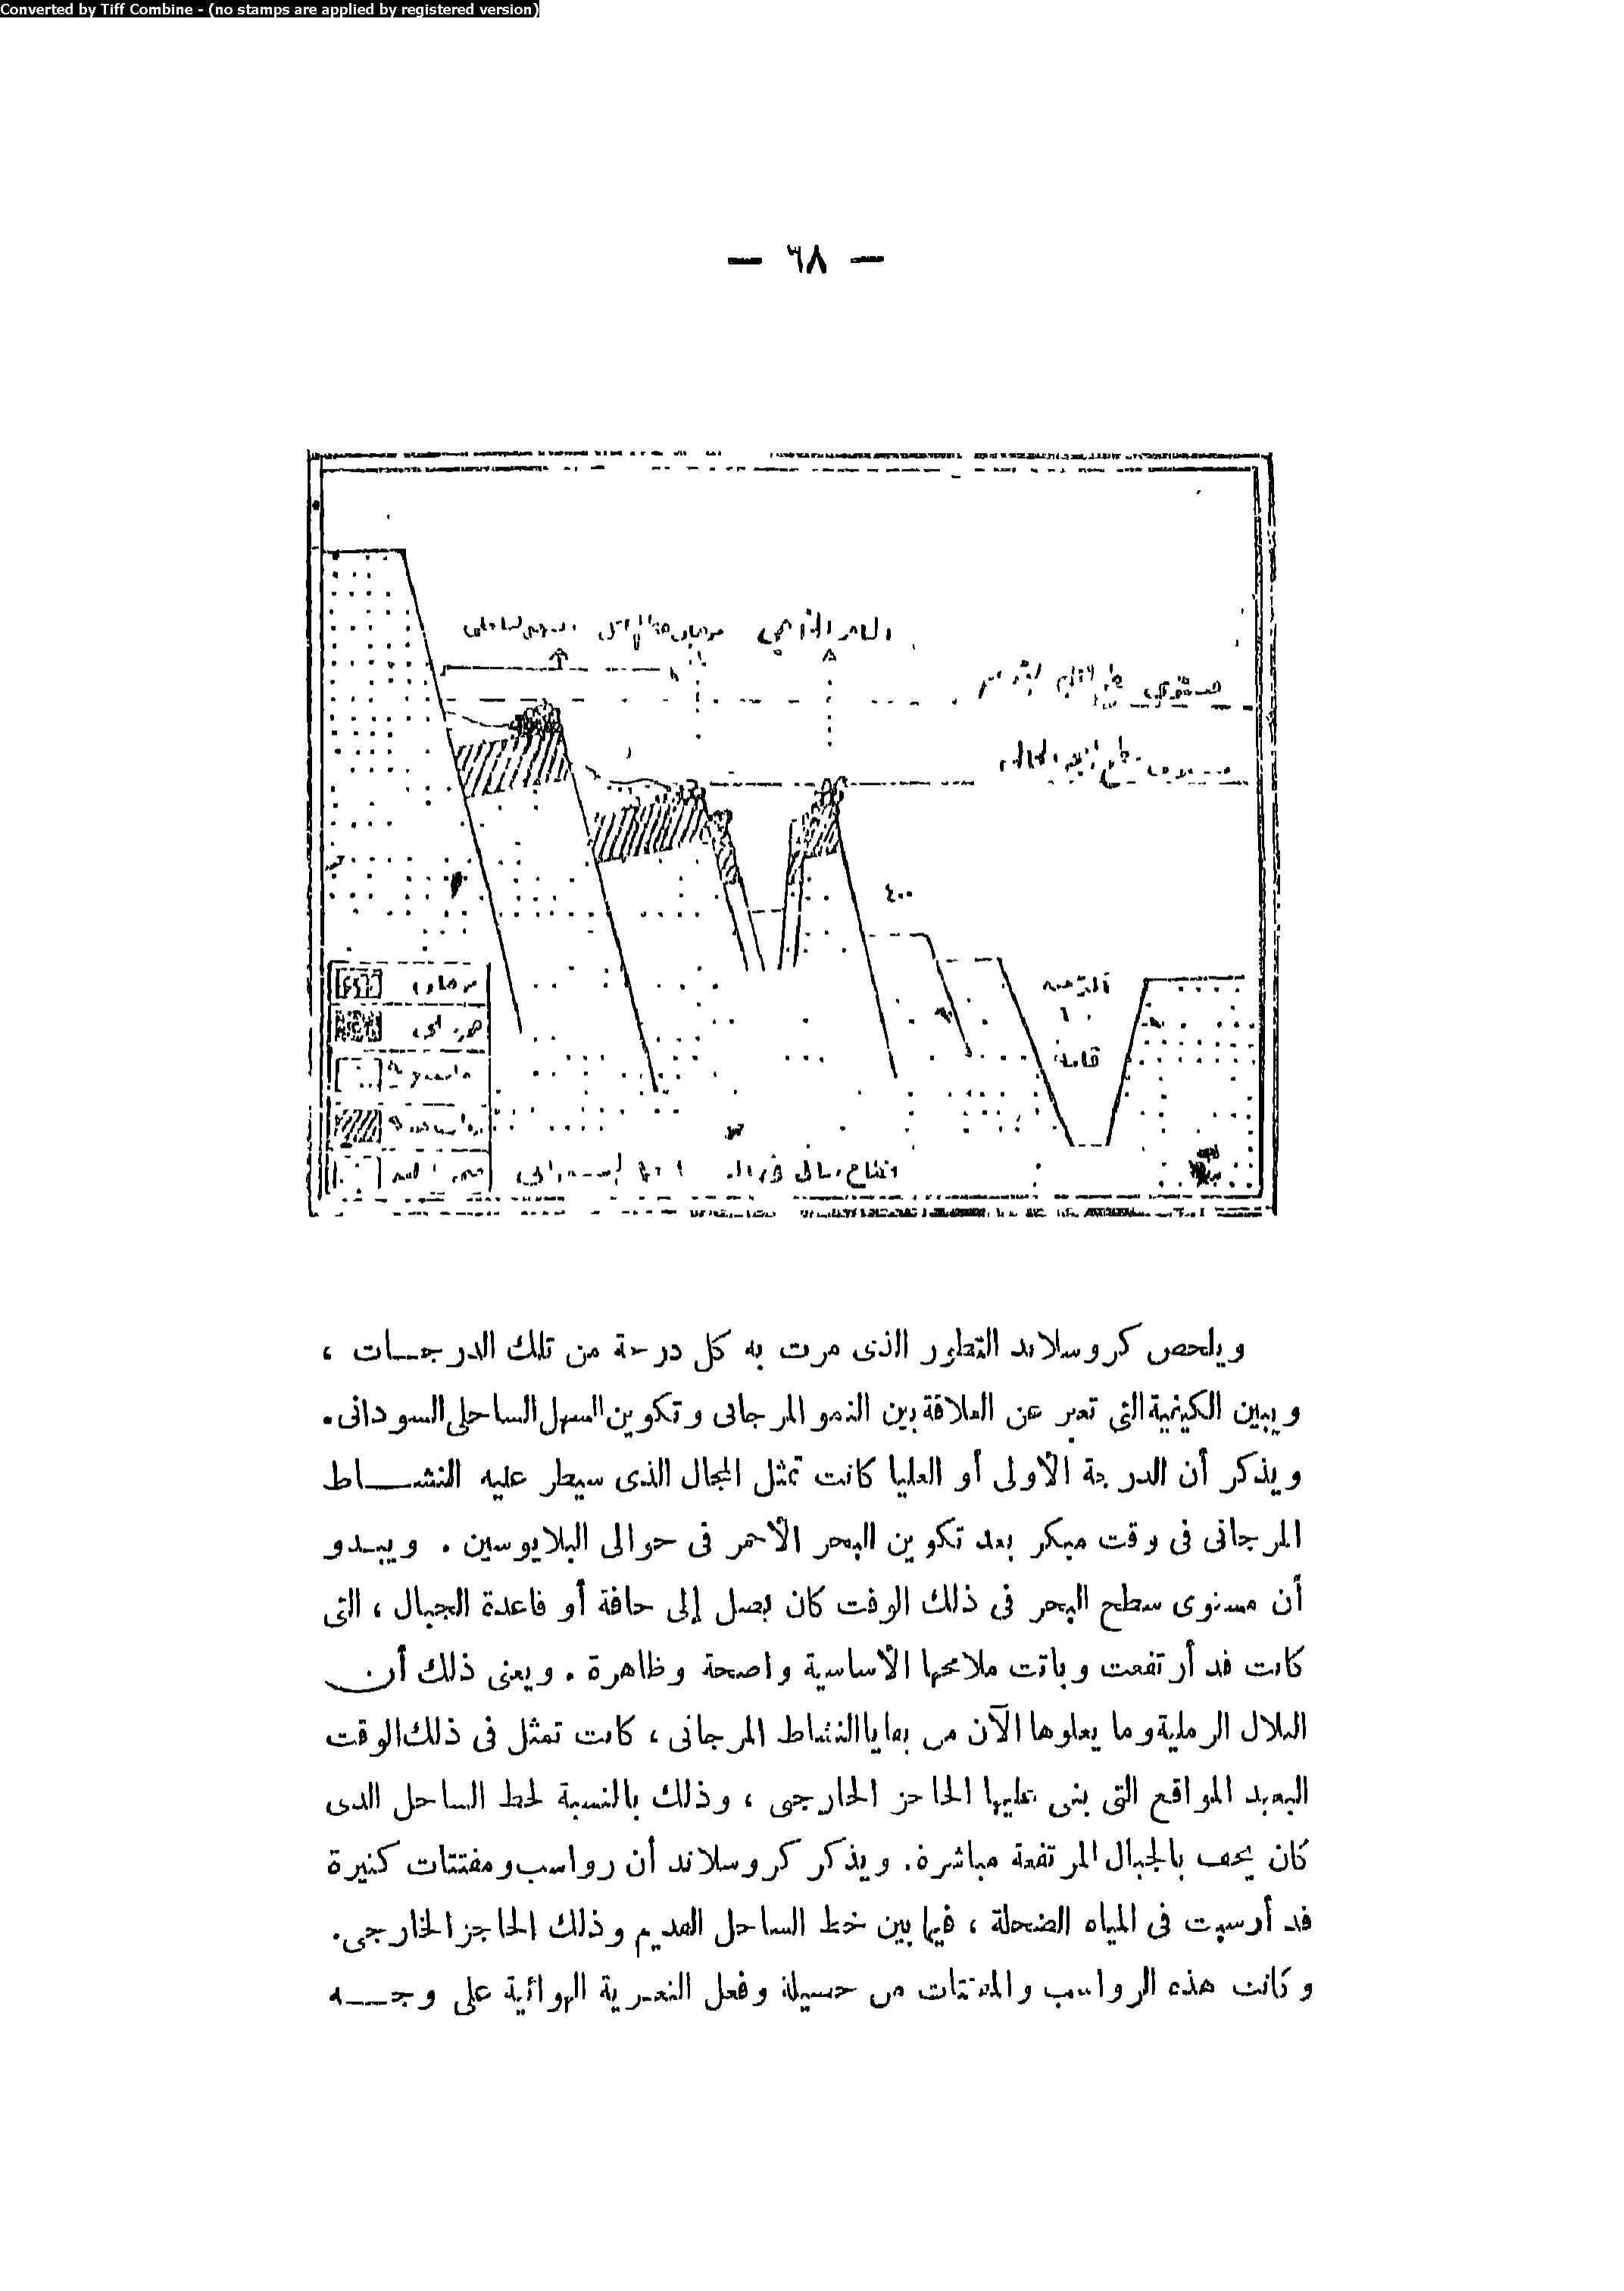 Converted by Tiff Combine - (no stamps are applied by registered version)
— ٦٨ —
السهل الساحلى
الحاجز الخارجي
مستوى سطح البحر القديم
مستوى سطح البحر الحالى
٤٠٠
قامة
مرجان
ويلخص كروسلاند التطور الذى مرت به كل درجة من تلك الدرجـات ،
ويبين الكيفية التى تعبر عن العلاقة بين النمو المرجانى وتكوين السهل الساحلى السودانى.
ويذكر أن الدرجة الأولى أو العليا كانت تمثل المجال الذى سيطر عليه النشـــاط
المرجانى فى وقت مبكر بعد تكوين البحر الأحمر فى حوالى البلايوسين . ويبـدو
أن مستوى سطح البحر فى ذلك الوقت كان يصل إلى حافة أو قاعدة الجبال ، التى
كانت قد أرتفعت وباتت ملامحها الأساسية واضحة وظاهرة . ويعنى ذلك أن
التلال الرملية وما يعلوها الآن من بقايا النشاط المرجانى ، كانت تمثل فى ذلك الوقت
البعيد المواقع التى بنى عليها الحاجز الخارجى ، وذلك بالنسبة لخط الساحل الذى
كان يحف بالجبال المرتفعة مباشرة. ويذكر كروسلاند أن رواسب ومفتتات كثيرة
قد أرسبت فى المياه الضحلة ، فيما بين خط الساحل القديم وذلك الحاجز الخارجى.
وكانت هذه الرواسب والمفتتات من حصيلة وفعل التعرية الهوائية على وجـــه